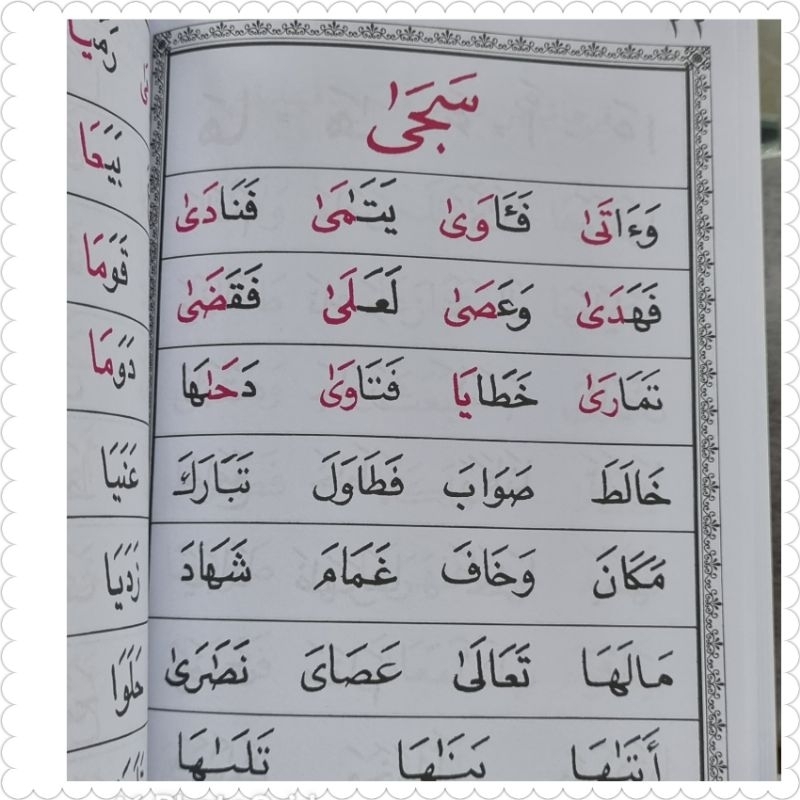 سَجَىٰ
وَءَاتَىٰ فَـَٔاوَىٰ يَتَـٰمَىٰ فَنَادَىٰ
فَهَدَىٰ وَعَصَىٰ لَعَـلَىٰ فَقَضَىٰ
تَمَارَىٰ خَطَايَا فَتَاوَىٰ دَحَىٰهَا
خَالَطَ صَوَابَ فَطَاوَلَ تَبَارَكَ
مَكَانَ وَخَافَ غَمَامَ شَهَادَ
مَالَهَا تَعَالَىٰ عَصَايَ نَصَٰرَىٰ
بَيَعَا
قَوَمَا
دَوَمَا
عَنَيَا
رَدَيَا
خَلَوَا